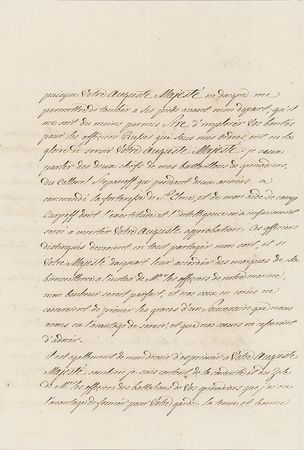 puisque Votre Auguste Majesté ne daigne me
permettre de tomber à ses pieds avant mon départ, qu'il
me soit du moins permis Sire d'implorer vos bontés
pour les officiers Russes qui sous mes ordres, ont eu la
gloire de servir Votre Auguste Majesté. je veux
parler des deux chefs de mes bataillons de grenadiers,
du Collonel qui pendant deux années a
commandé la forteresse de St. Elme, et de mon aide de camp
dont l'exactitude et l'intelligence
mériter Votre Auguste approbation. Ces officiers
distingués devraient en tout partager mon sort, et si
Votre Majesté daignait leur accorder des marques de sa
bienveillance à l'instar de Mrs. les officiers de notre marine,
mon bonheur serait parfait, et nos voix en
cesseraient de prôner les graces d'un Souverain que nous
avons eu l'avantage de servir, et que nos cœurs ne
d'adorer.
il est également de mon devoir d'exprimer à Votre Auguste
Majesté, combien je suis content de la conduite et du zèle
de Mrs. les officiers des bataillons de Vos grenadiers que j'ai eu
l'avantage de former pour Votre garde. la tenue et bonne